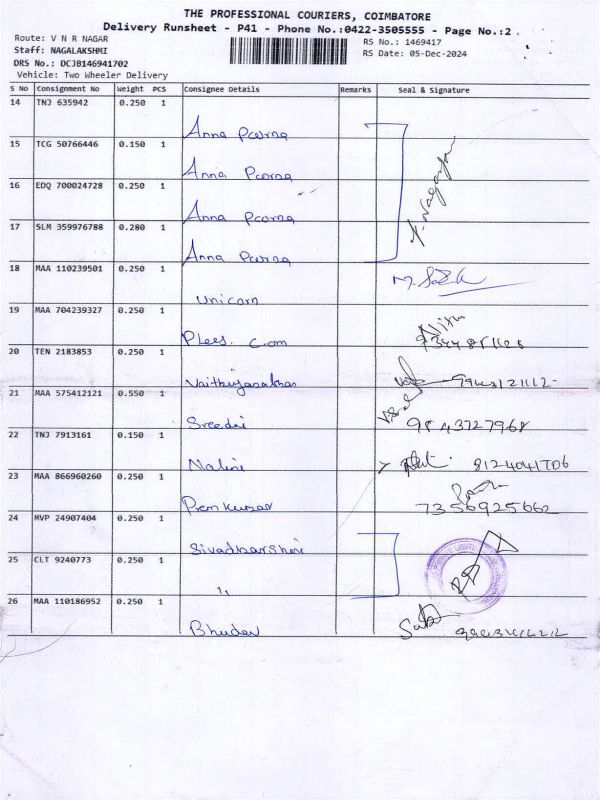 THE PROFESSIONAL COURIERS, COIMBATORE
Delivery Runsheet - P41 - Phone No.:0422-3505555 - Page No.:2
Route: V N R NAGAR
RS No.: 1469417
Staff: NAGALAKSHMI
RS Date: 05-Dec-2024
DRS No.: DCJB146941702
Vehicle: Two Wheeler Delivery
S No Consignment No Weight PCS Consignee Details Remarks Seal & Signature
14 TNJ 635942 0.250 1
Anna Poorna
15 TCG 50766446 0.150 1
Anna Poorna
16 EDQ 700024728 0.250 1
Anna Poorna
17 SLM 359976788 0.280 1
Anna Poorna
18 MAA 110239501 0.250 1
Unicorn
19 MAA 704239327 0.250 1
Plees. Com
20 TEN 2183853 0.250 1
21 MAA 575412121 0.550 1
Sreedni 9843727968
22 TNJ 7913161 0.150 1
Nalini 8124041706
23 MAA 866960260 0.250 1
Premkumar 7356925662
24 MVP 24907404 0.250 1
Sivadharshni
25 CLT 9240773 0.250 1
"
26 MAA 110186952 0.250 1
Bhudev